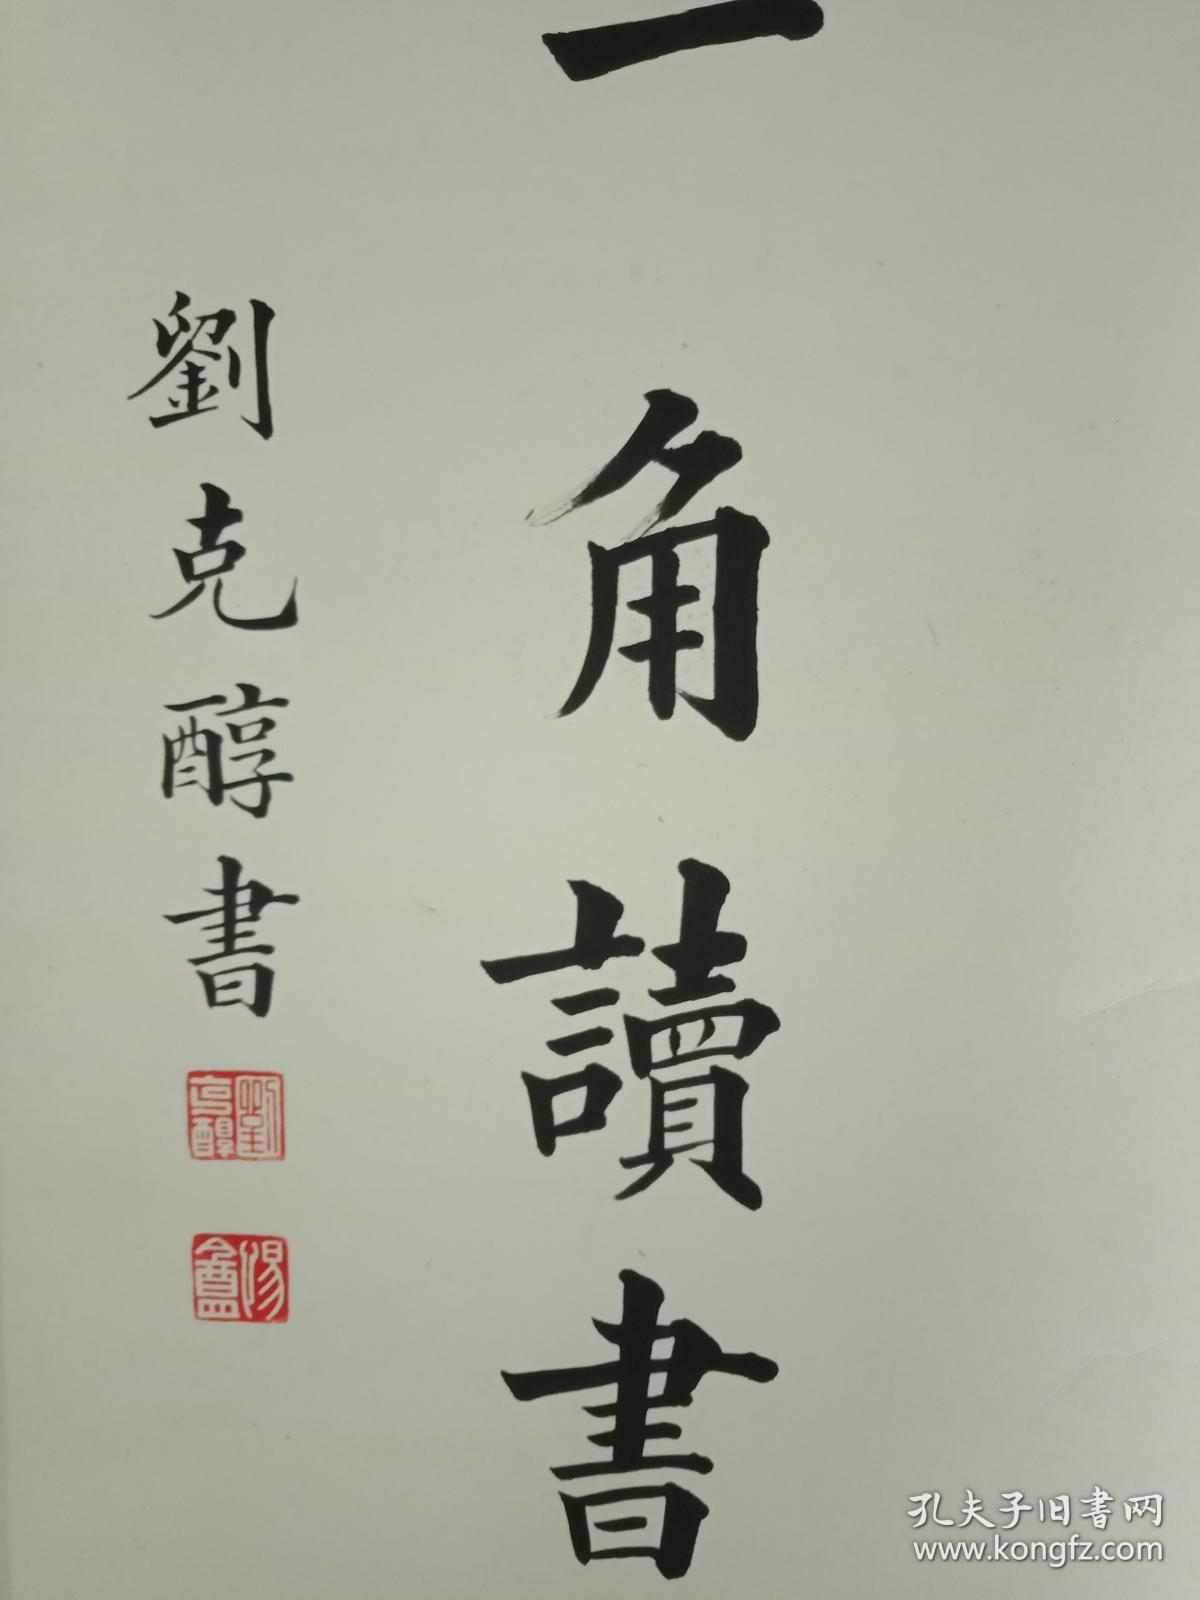 一角讀書
劉克醇書
劉克醇
孔夫子旧书网
www.kongfz.com